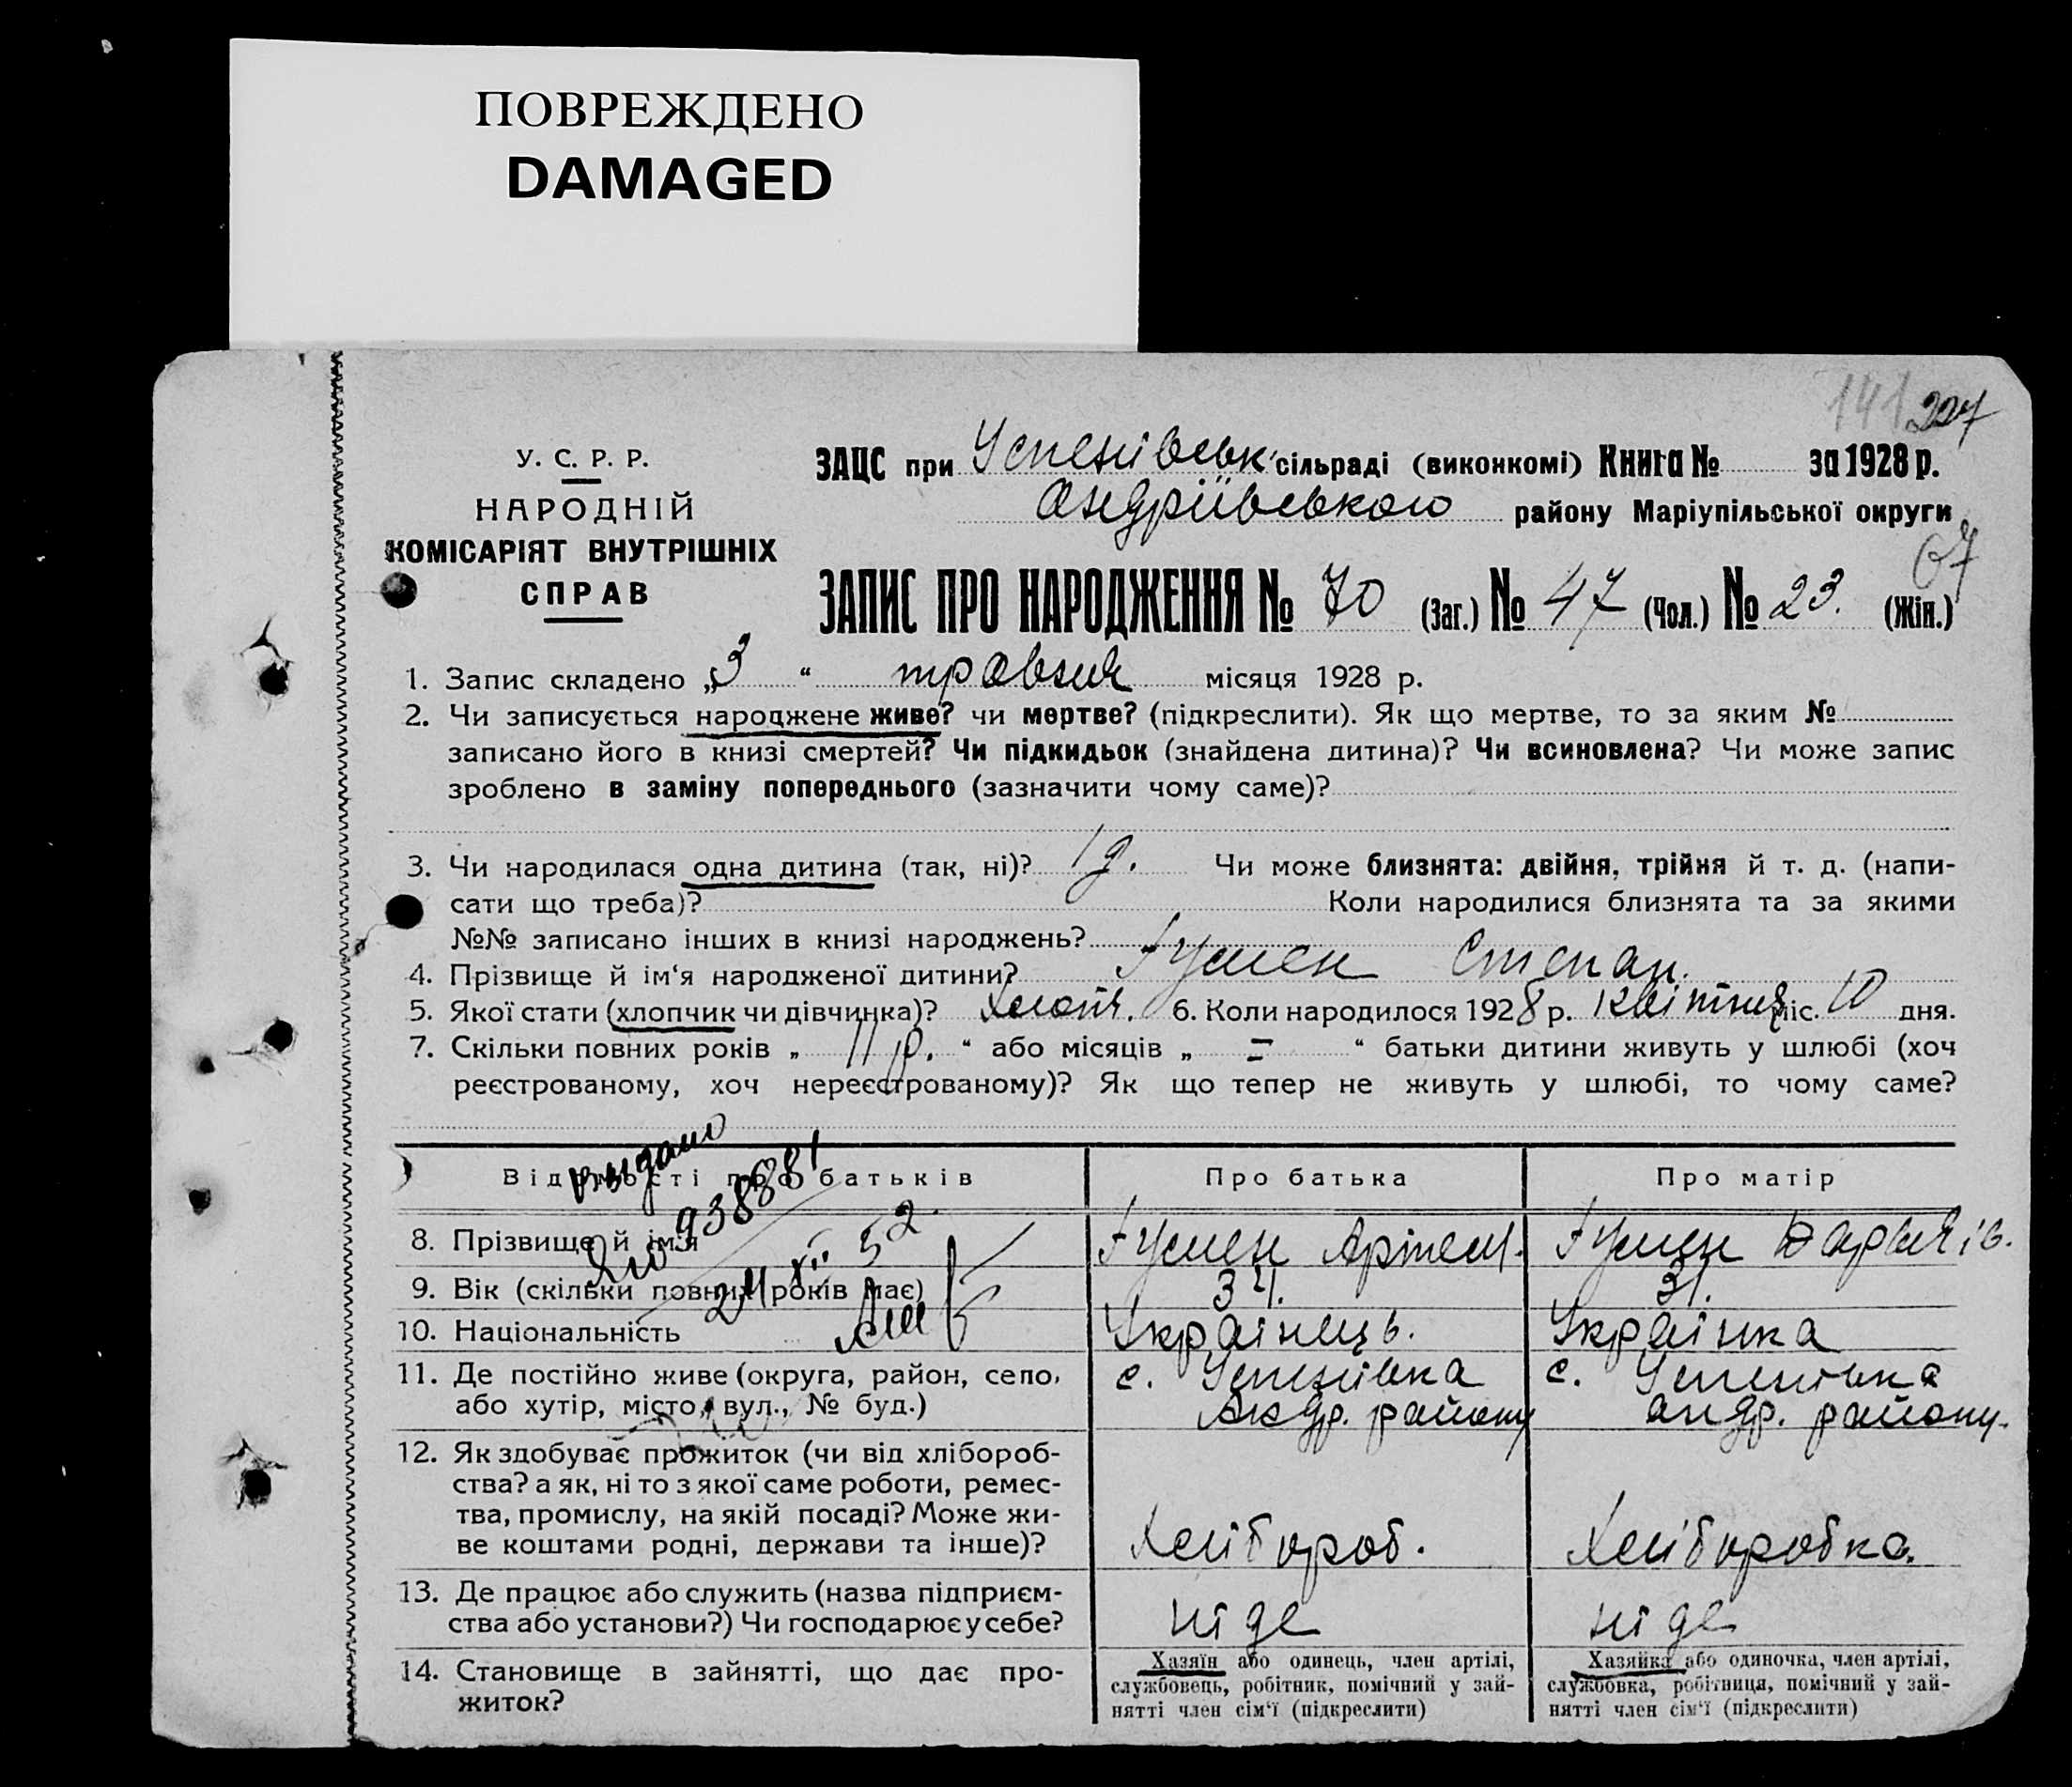 ПОВРЕЖДЕНО
DAMAGED
141 227
У. С. Р. Р.
НАРОДНІЙ
КОМІСАРІЯТ ВНУТРІШНІХ
СПРАВ
ЗАЦС при Успенівськ. сільраді (виконкомі) Книга № за 1928 р.
Андріївського району Маріупільської округи
67
ЗАПИС ПРО НАРОДЖЕННЯ № 70 (Заг.) № 47 (Чол.) № 23. (Жін.)
1. Запис складено „3“ травня місяця 1928 р.
2. Чи записується народжене живе? чи мертве? (підкреслити). Як що мертве, то за яким №
записано його в книзі смертей? Чи підкидьок (знайдена дитина)? Чи всиновлена? Чи може запис
зроблено в заміну попереднього (зазначити чому саме)?
3. Чи народилася одна дитина (так, ні)? 1 д. Чи може близнята: двійня, трійня й т. д. (напи-
сати що треба)? Коли народилися близнята та за якими
№№ записано інших в книзі народжень?
4. Прізвище й ім‘я народженої дитини? Гумен Степан.
5. Якої стати (хлопчик чи дівчинка)? Хлопч. 6. Коли народилося 1928 р. Квітня міс. 10 дня.
7. Скільки повних років „ 11 р. “ або місяців „ – “ батьки дитини живуть у шлюбі (хоч
реєстрованому, хоч нереєстрованому)? Як що тепер не живуть у шлюбі, то чому саме?
Відомості про батьків Про батька Про матір
выдано
938881
24 XII 52
8. Прізвище й ім‘я Гумен Артем. Гумен
9. Вік (скільки повних років має) 34. 31.
10. Національність Українець. Українка
11. Де постійно живе (округа, район, село, с. Успенівка с. Успенівка
або хутір, місто, вул., № буд.) Андр. району Андр. району.
12. Як здобуває прожиток (чи від хлібороб-
ства? а як, ні то з якої саме роботи, ремес-
тва, промислу, на якій посаді? Може жи-
ве коштами родні, держави та інше)? Хлібороб. Хліборобка.
13. Де працює або служить (назва підприєм-
ства або установи?) Чи господарює у себе? ніде ніде
14. Становище в зайнятті, що дає про-
житок?
Хазяїн або одинець, член артілі,
службовець, робітник, помічний у зай-
нятті член сім‘ї (підкреслити)
Хазяйка або одиночка, член артілі,
службовка, робітниця, помічний у зай-
нятті член сім‘ї (підкреслити)